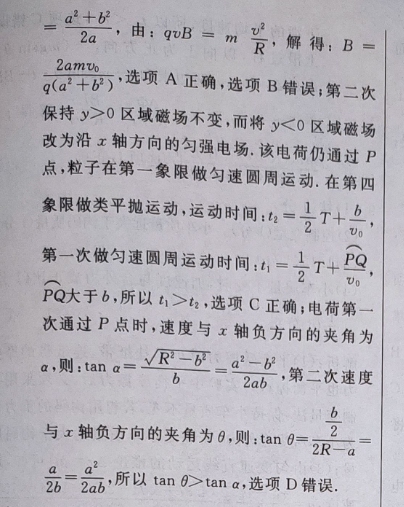 = \frac{a²+b²}{2a}, 由: qvB = m \frac{v²}{R}, 解得: B =
\frac{2amv₀}{q(a²+b²)},选项 A 正确,选项 B 错误;第二次
保持 y>0 区域磁场不变,而将 y<0 区域磁场
改为沿 x 轴方向的匀强电场.该电荷仍通过 P
点,粒子在第一象限做匀速圆周运动.在第四
象限做类平抛运动,运动时间:t₂=\frac{1}{2}T+\frac{b}{v₀},
第一次做匀速圆周运动时间:t₁=\frac{1}{2}T+\frac{\overset{\frown}{PQ}}{v₀},
\overset{\frown}{PQ}大于 b,所以 t₁>t₂,选项 C 正确;电荷第一
次通过 P 点时,速度与 x 轴负方向的夹角为
α,则:tan α=\frac{\sqrt{R²-b²}}{b}=\frac{a²-b²}{2ab},第二次速度
与 x 轴负方向的夹角为 θ,则:tan θ=\frac{\frac{b}{2}}{2R-a}=
\frac{a}{2b}=\frac{a²}{2ab},所以 tan θ>tan α,选项 D 错误.